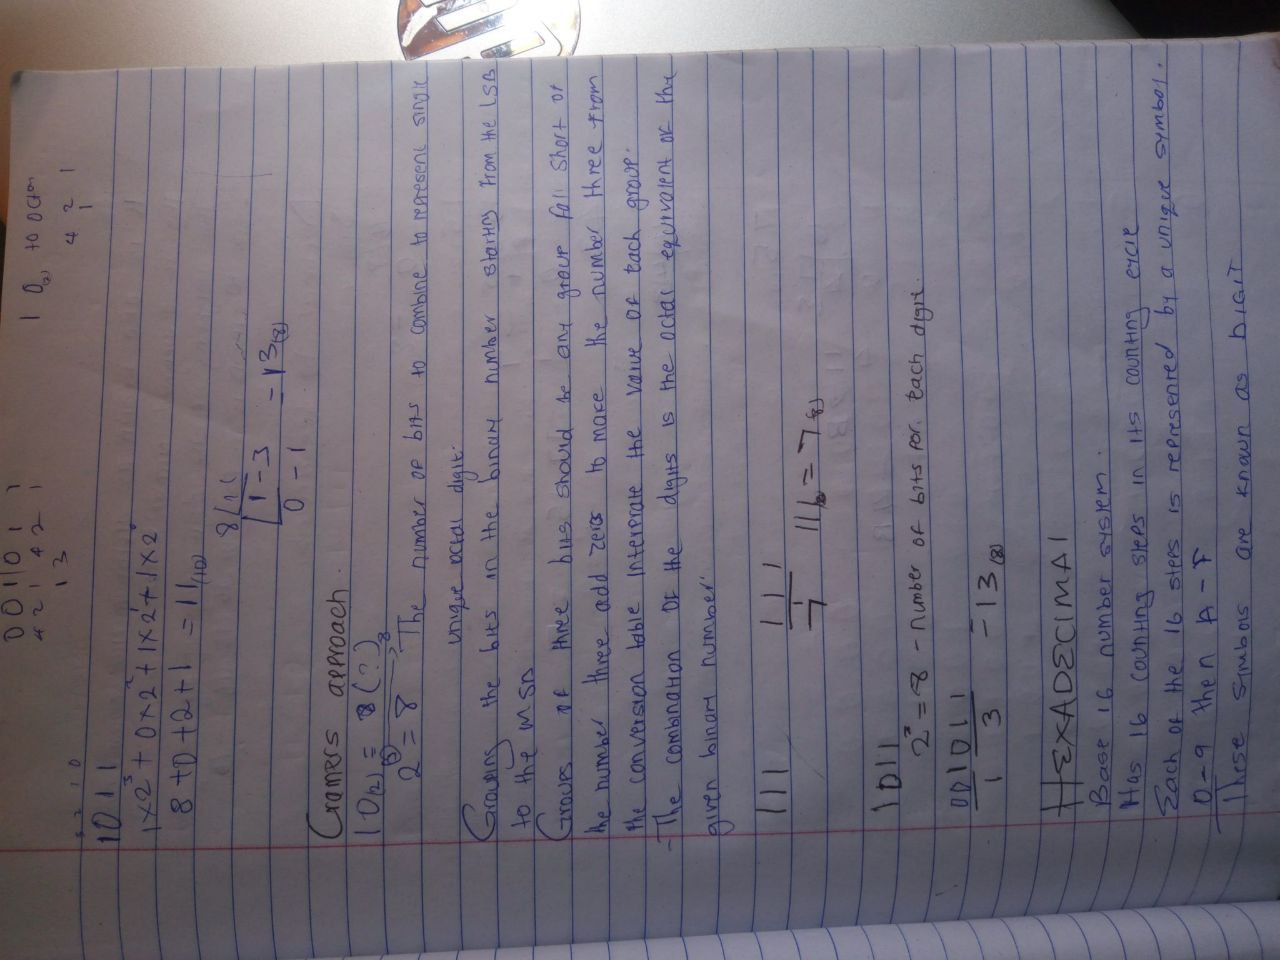 0 0 1 0 1 1
4 2 1 4 2 1
1 3
1 0(2) to octa
4 2 1
1
3 2 1 0
1 0 1 1
1×2³ + 0×2² + 1×2¹ + 1×2⁰
8 + 0 + 2 + 1 = 11(10)
8 11
1 - 3
0 - 1
= 13(8)
Cramers approach.
10(2) = (?)8
2³ = 8 The number of bits to combine to represent single
unique octal digit.
Grouping the bits in the binary number starting from the LSB
to the MSB
Groups of three bits should be any group fall short of
the number three add zeros to make the number three from
the conversion table interprate the value of each group.
- The combination of the digits is the octal equivalent of the
given binary number.
111 111
7 111₂ = 7(8)
1011
2³ = 8 - number of bits for each digit.
001 011
1 3 = 13(8)
HEXADECIMAL
Base 16 number system.
Has 16 counting steps in its counting cycle
Each of the 16 steps is represented by a unique symbol.
0 - 9 then A - F
These symbols are known as DIGIT